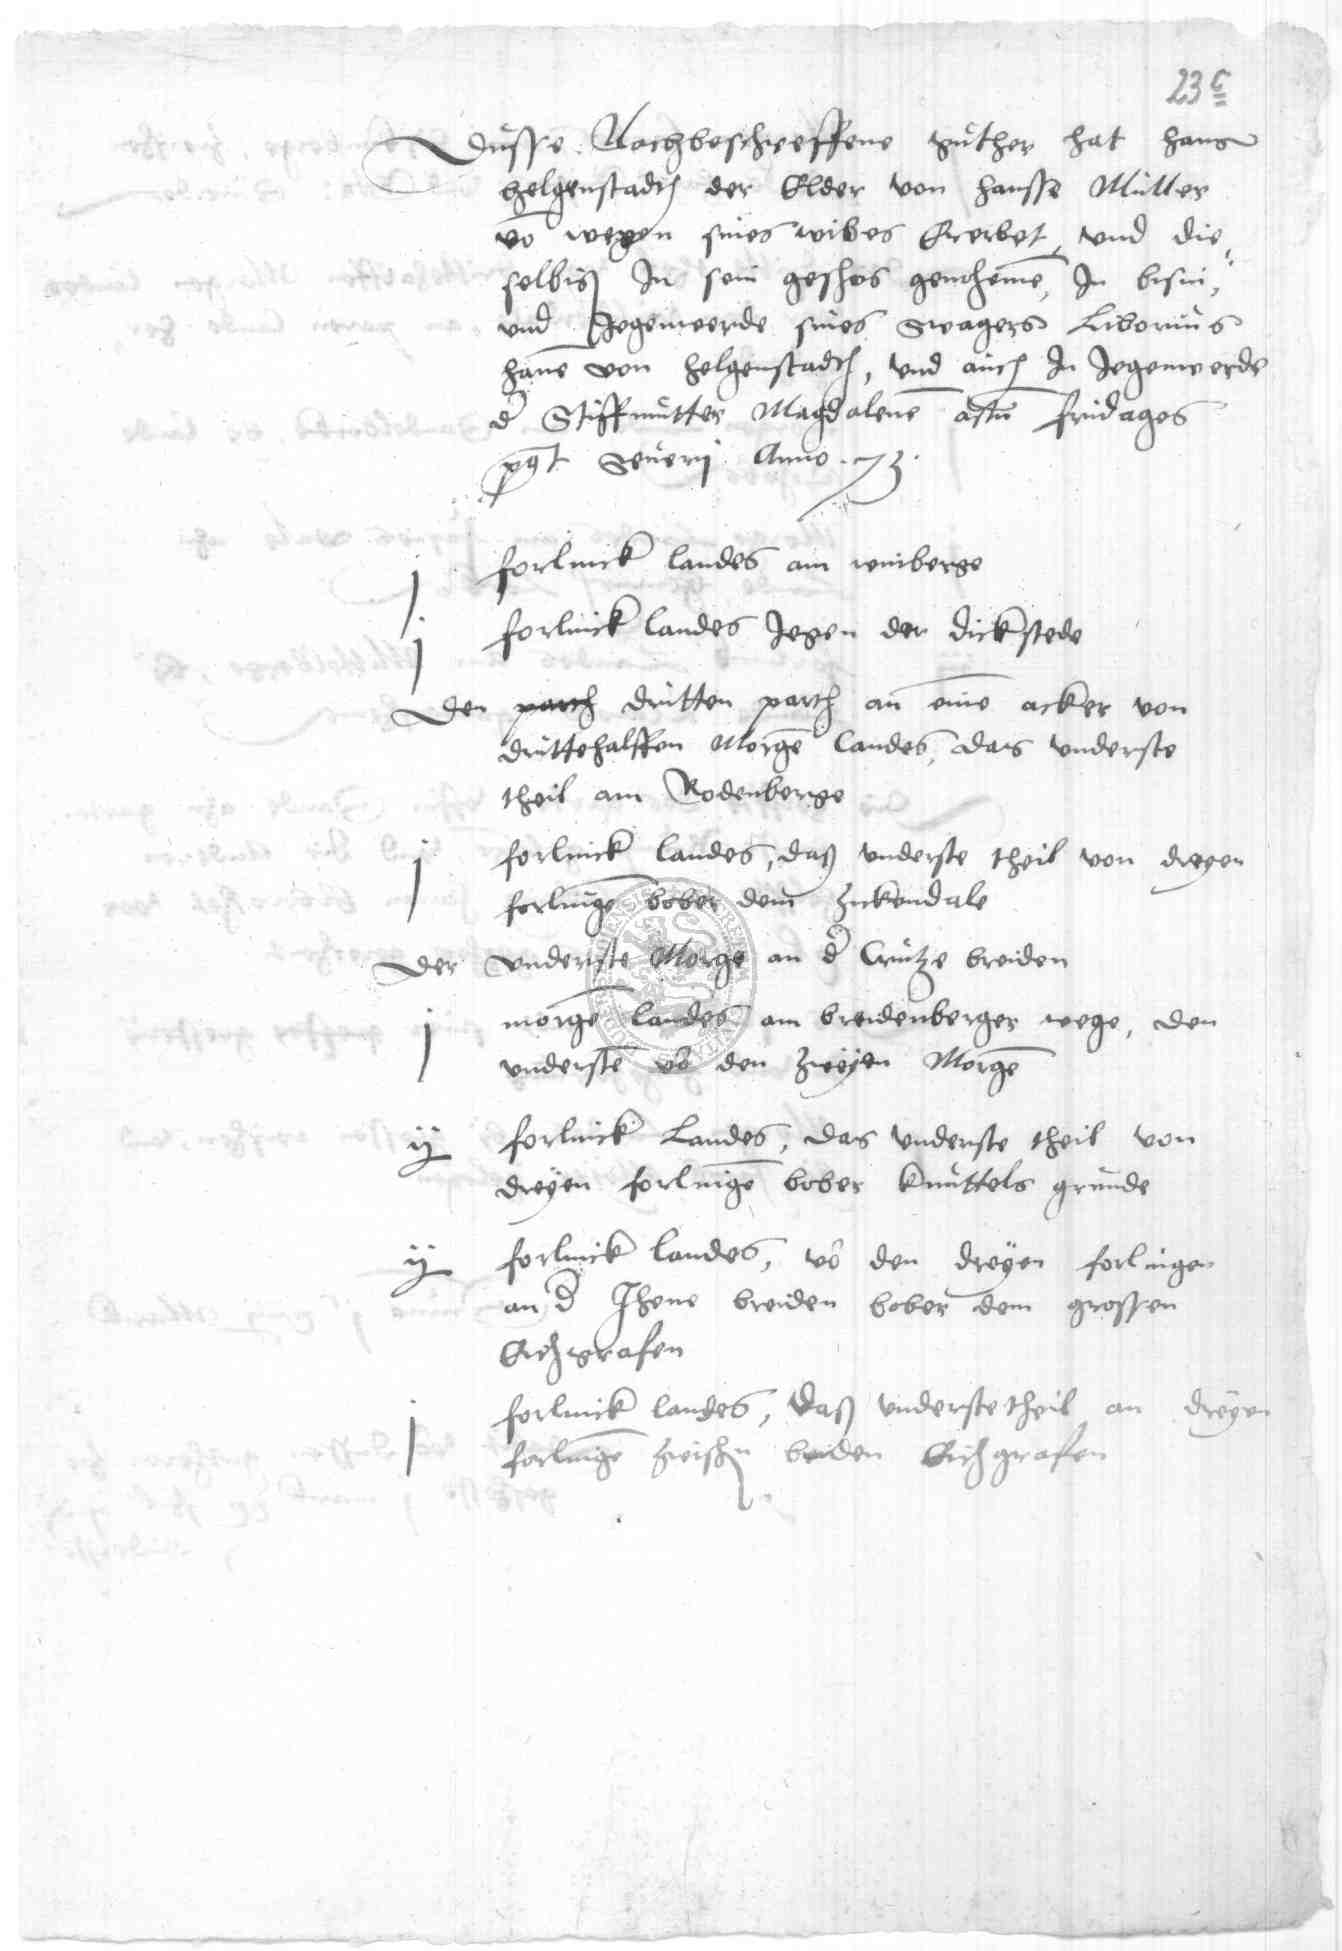 23 c
Dusse Nachbeschreffene guther hat hans
helgenstadt der Elder von hansse Mutter
vō wegen sines wibes Ererbet, vnd die
selbiß In sein geschos genohemē, In bisin,
vnd Jegenwerde sines swagers Liborius
hanē von helgenstadt, vnd auch In Jegenwerde
d' Stiffmutter Magdalenē actū fridages
pꝰt Seuerij Anno . 73 .
j forlinck landes am winberge
j forlinck landes Jegen der dickstede
Den parth dritten parth an einē acker von
drittehalffen Morgē landes, das vnderste
theil am Rodenberge
j forlinck landes, daß vnderste theil von dreyen
forlingē bober dem Zickendale
Der vnderste Morge an d' Crutze breiden
j morgē landes am breidenberger wege, den
vnderstē vō den zweyen Morgē
ij forlinck Landes, das vnderste theil von
dreyen forlingē bober knuttels grunde
ij forlinck landes, vō den dreyen forlingen
an d' Ihene breiden bober dem grossen
Eichgrafen
j forlinck landes, daß vnderste theil an dreyen
forlingē zwischn beiden Eichgrafen